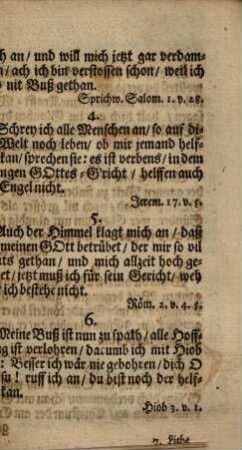 h an / und will mich jetzt gar verdam-
en / ach ich bin verstossen schon / weil ich
nit Buß gethan.
Sprichw. Salom. 1. v. 28.
4.
Schrey ich alle Menschen an / so auf di-
Welt noch leben / ob mir jemand helf-
kan / sprechen sie: es ist verbens / in dem
ngen GOttes-G'richt / helffen auch
Engel nicht.
Jerem. 17. v. 5.
5.
Auch der Himmel klagt mich an / daß
meinen GOtt betrübet / der mir so vil
ts gethan / und mich allzeit hoch ge-
et / jetzt muß ich für sein Gericht / weh
ich bestehe nicht.
Röm. 2. v. 4. 5.
6.
Meine Buß ist nun zu spath / alle Hoff-
g ist verlohren / darumb ich mit Hiob
! Besser ich wär nie gebohren / dich O
su! ruff ich an / du bist noch der helf-
kan.
Hiob 3. v. 1.
7. Liebe